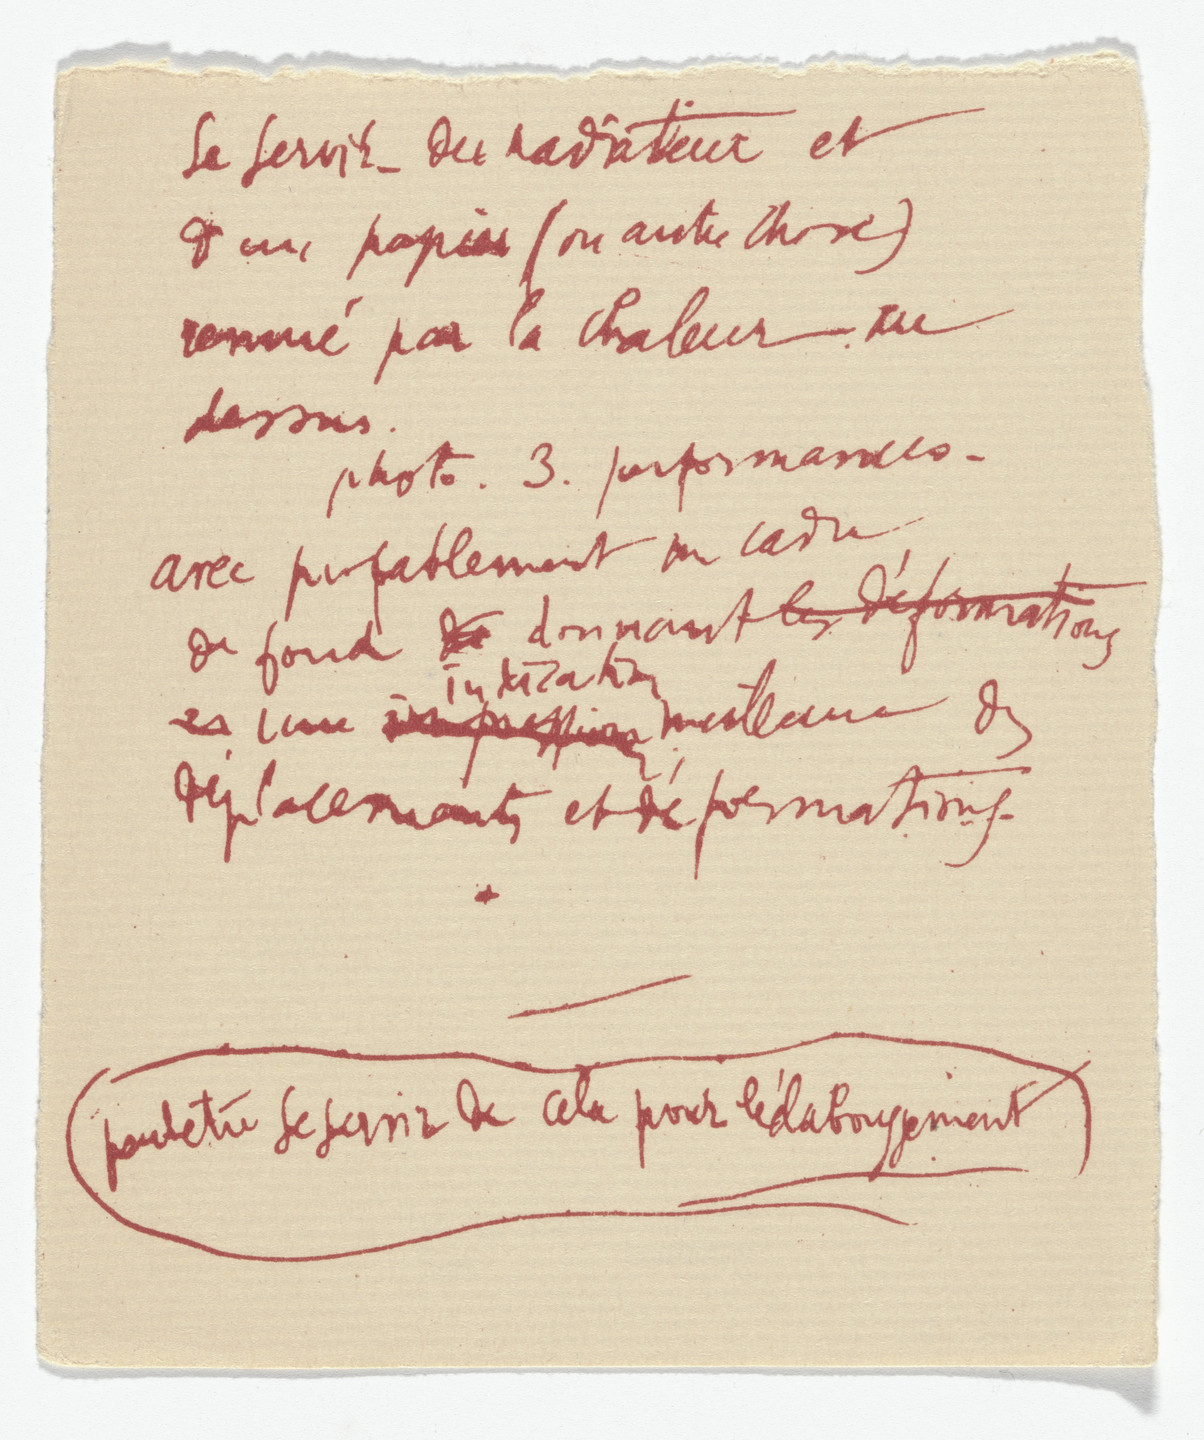 Se servir du radiateur et
d'un papier (ou autre chose)
remué par la chaleur au
dessus.
photo. 3. performances -
avec probablement un cadre
de fond de donnant les déformations
indication
une impression meilleure des
déplacements et déformations -
peut être se servir de cela pour l'élabougement